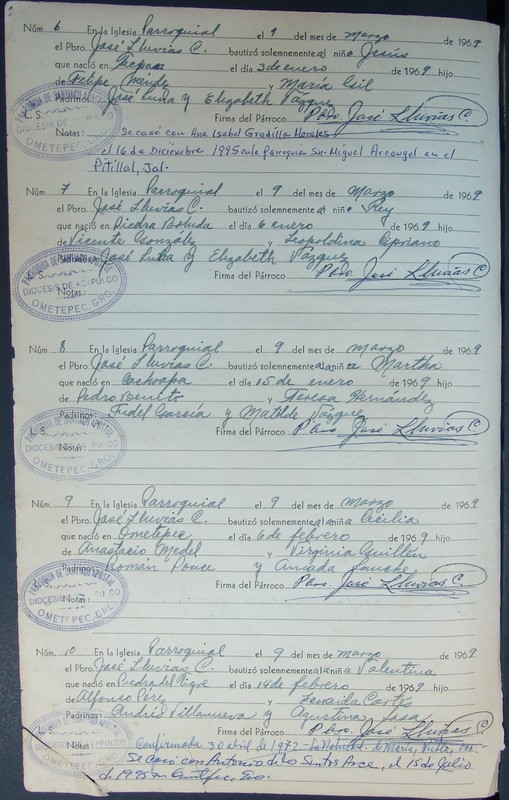 Núm. 6 En la Iglesia Parroquial el 9 del mes de Marzo de 1969
el Pbro. José Lluvias C. bautizó solemnemente al niño Jesús
que nació en el día 3 de enero de 1969 hijo
de Felipe y María Gil
Padrinos: José Luna y Elizabeth Vázquez
L. S. Firma del Párroco Pbro. José Lluvias C.
Notas: Se casó con Ana Isabel Gradilla Morales
el 16 de Diciembre 1995 en la Parroquia Sn. Miguel Arcangel en el
Pitillal, Jal.
PARROQUIA DE SANTIAGO APOSTOL
DIOCESIS DE ACAPULCO
OMETEPEC, GRO.
Núm. 7 En la Iglesia Parroquial el 9 del mes de Marzo de 1969
el Pbro. José Lluvias C. bautizó solemnemente al niño Rey
que nació en Piedra Boluda el día 6 enero de 1969 hijo
de Vicente González y Leopoldina Cipriano
Padrinos: José Luna y Elizabeth Vázquez
L. S. Firma del Párroco Pbro. José Lluvias C.
Notas:
PARROQUIA DE SANTIAGO APOSTOL
DIOCESIS DE ACAPULCO
OMETEPEC, GRO.
Núm. 8 En la Iglesia Parroquial el 9 del mes de Marzo de 1969
el Pbro. José Lluvias C. bautizó solemnemente a la niña Martha
que nació en Cochoapa el día 15 de enero de 1969 hijo
de Pedro Benito y Teresa Hernández
Padrinos: Fidel García y Matilde Vázquez
Firma del Párroco Pbro. José Lluvias C.
Notas:
PARROQUIA DE SANTIAGO APOSTOL
DIOCESIS DE ACAPULCO
OMETEPEC, GRO.
Núm. 9 En la Iglesia Parroquial el 9 del mes de Marzo de 1969
el Pbro. José Lluvias C. bautizó solemnemente a la niña Cecilia
que nació en Ometepec el día 6 de febrero de 1969 hijo
de Anastacio Medel y Virginia Guillén
Padrinos: Román Ponce y
Firma del Párroco Pbro. José Lluvias C.
Notas:
PARROQUIA DE SANTIAGO APOSTOL
DIOCESIS DE ACAPULCO
OMETEPEC, GRO.
Núm. 10 En la Iglesia Parroquial el 9 del mes de marzo de 1969
el Pbro. José Lluvias C. bautizó solemnemente a la niña Valentina
que nació en el día 14 de febrero de 1969 hijo
de Alfonso Pérez y Zenaida Cortés
Padrinos: Andrés Villanueva y Agustina
L. S. Firma del Párroco Pbro. José Lluvias C.
Notas: Confirmada 30 abril de 1972 de María,
Se casó con Antonio de los Santos Arce, el 15 de Julio
de 1995 en